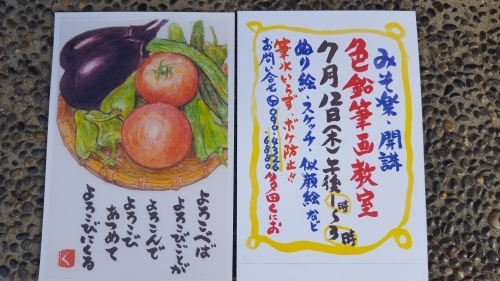 よろこべば
よろこびことが
よろこんで
よろこび
あつめて
よろこびにくる
く
みそ楽・開講
色鉛筆画教室
7月12日(木)午後1時〜3時
ぬり絵・スケッチ・似顔絵など
筆水いらず、ボケ防止!!
お問い合せ 090-4326-6880 多田くにお